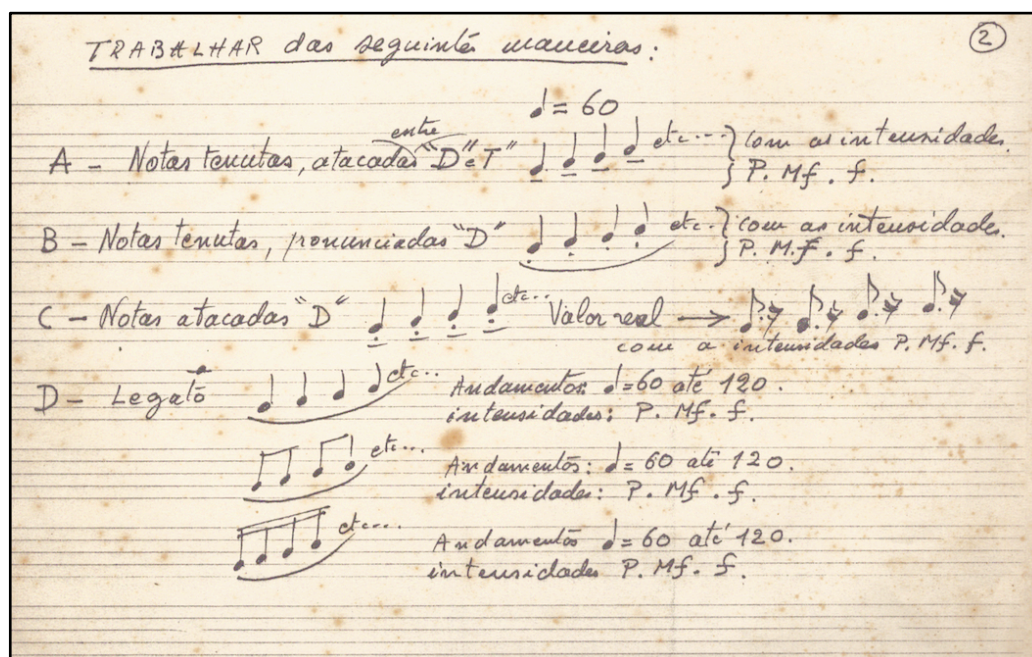 TRABALHAR das seguintes maneiras: ②
♩= 60
A - Notas tenutas, atacadas entre "D" e T" etc... } com as intensidades. P. Mf. f.
B - Notas tenutas, pronunciadas "D" etc.. } com as intensidades. P. M.f. f.
C - Notas atacadas "D" etc... Valor real → com a intensidades P. Mf. f.
D - Legato etc... Andamentos: ♩=60 até 120.
intensidades: P. Mf. f.
etc... Andamentos: ♩=60 até 120.
intensidades: P. Mf. f.
etc... Andamentos ♩=60 até 120.
intensidades P. Mf. f.